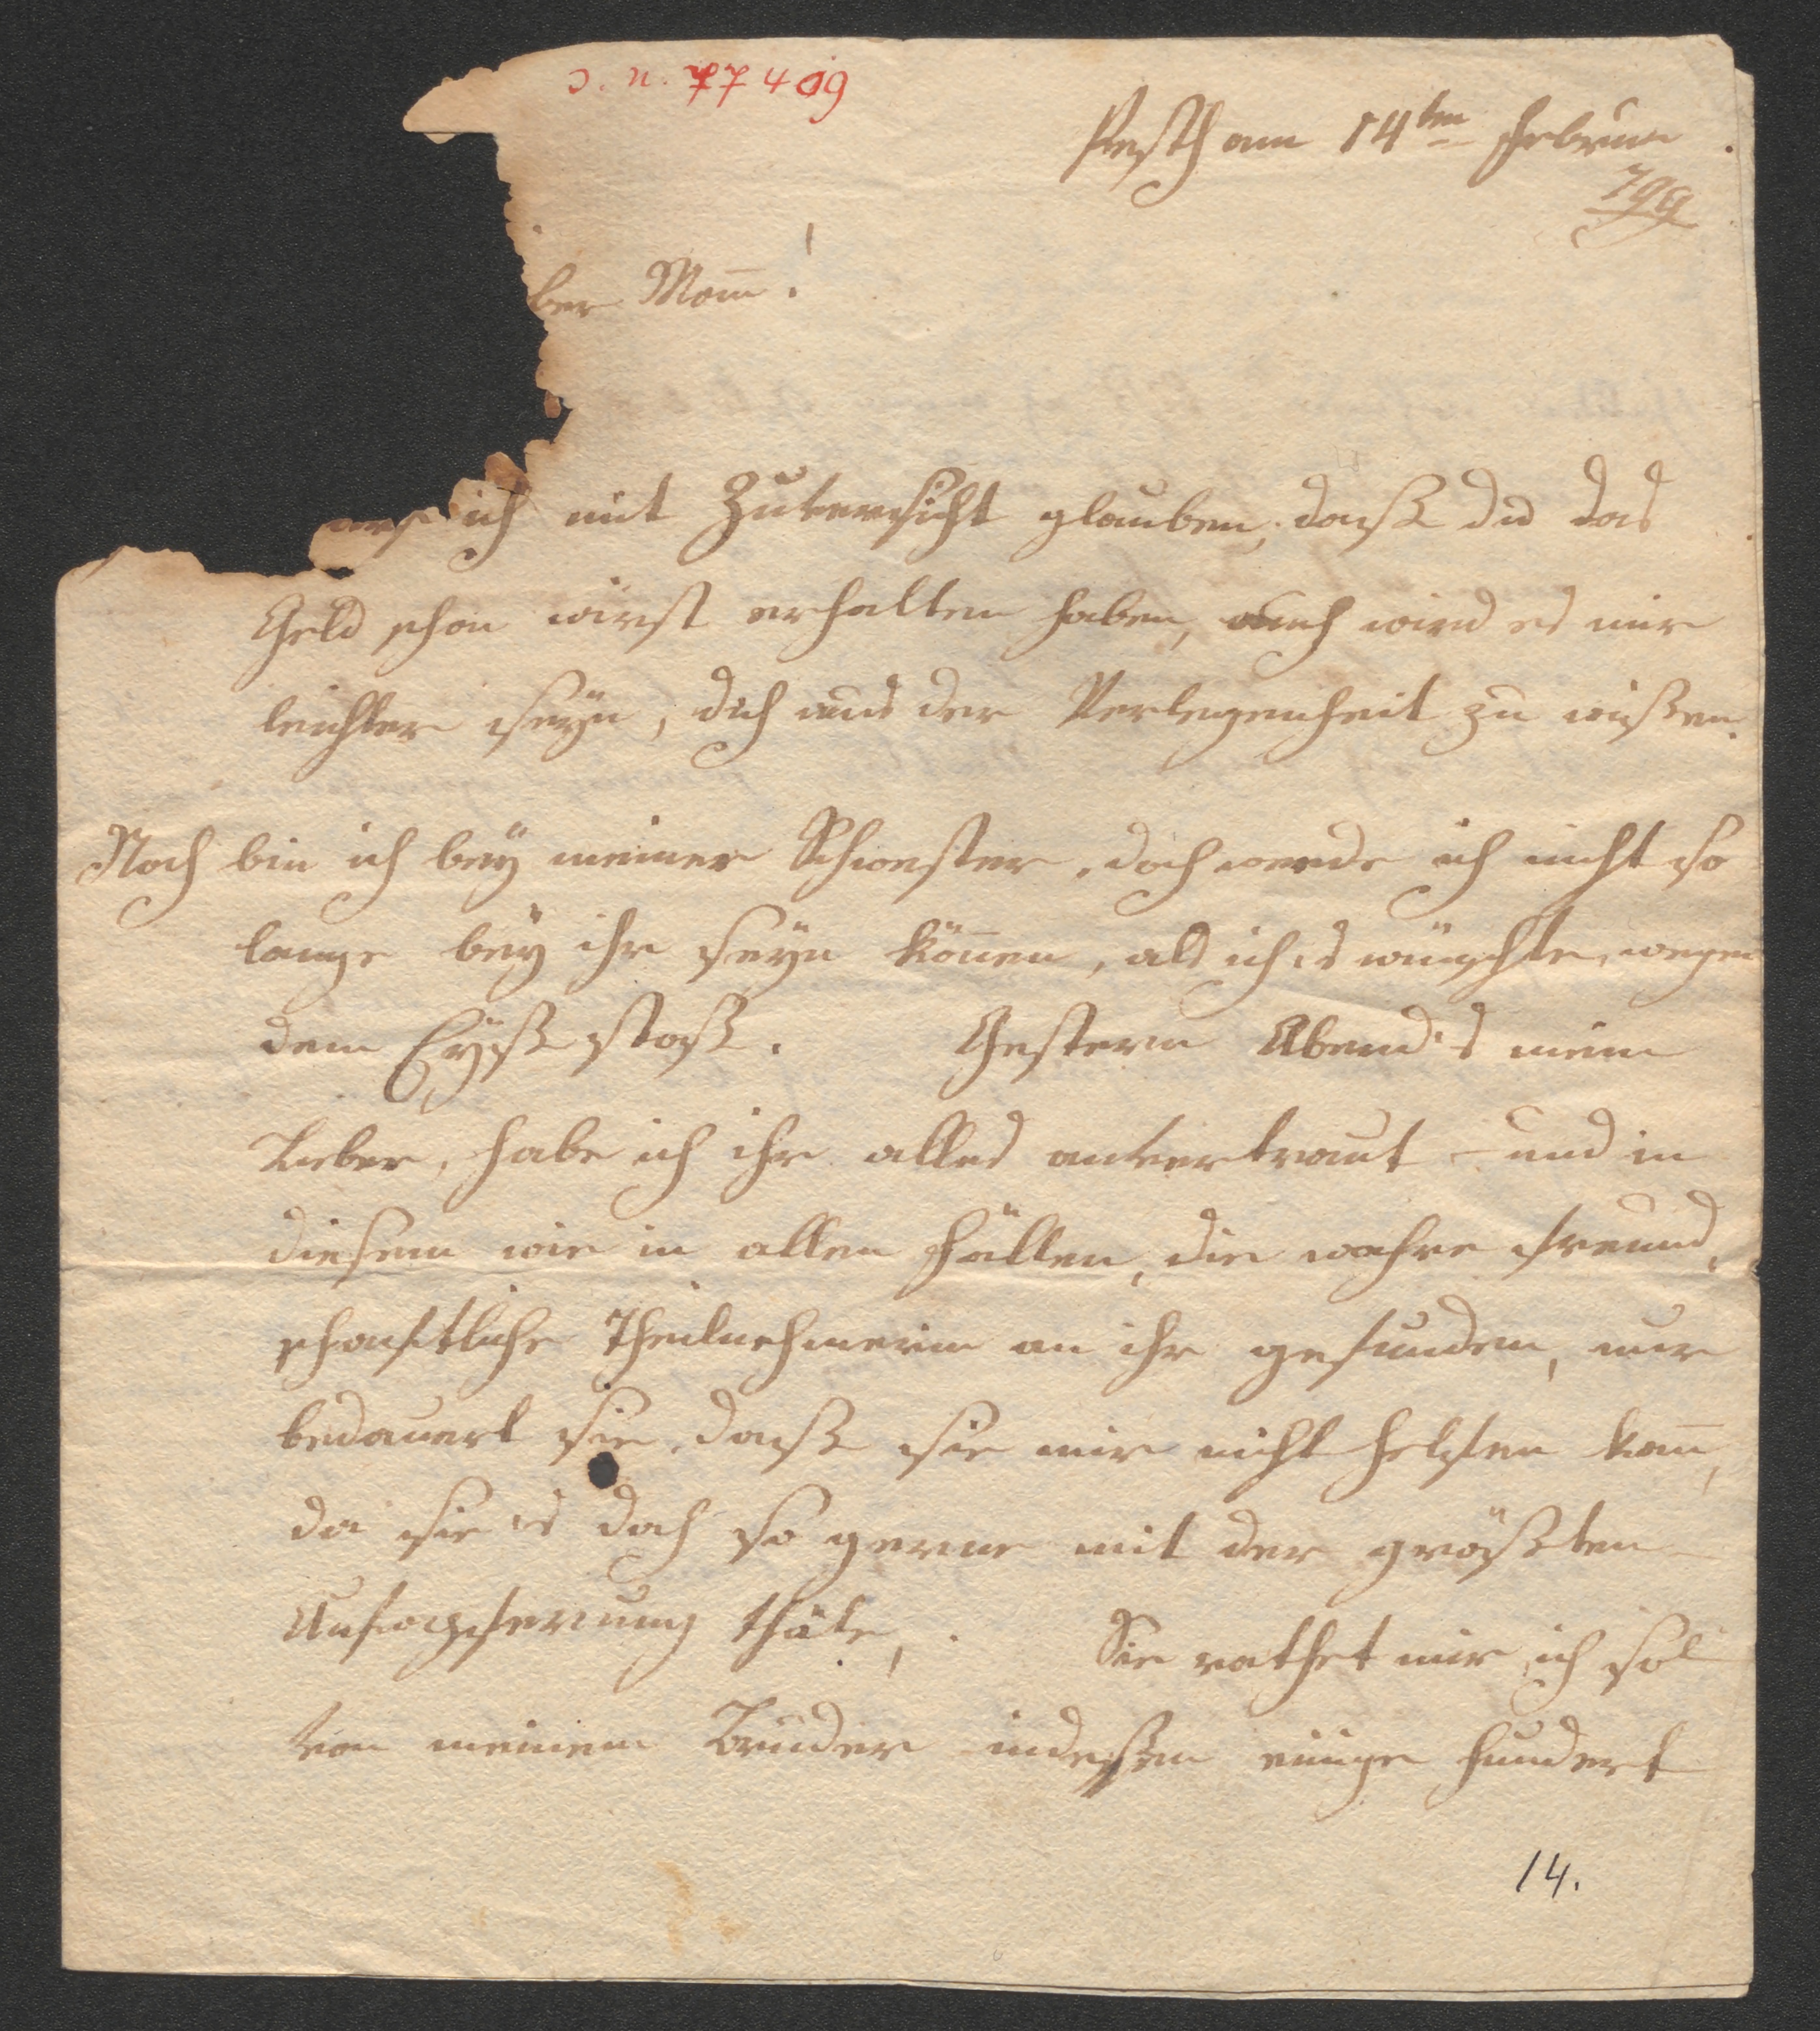 J. N. 77409
Pesth am 14ten Februar
799
ber Mañ!
arf ich mit Zuversicht glauben, daß du das
Geld schon wirst erhalten haben, auch wird es mir
leichter seyn, dich aus der Verlegenheit zu wißen.
Noch bin ich bey meiner Schwester, doch werde ich nicht so
lange bey ihr seyn köñen, als ich es wünschte, wegen
dem Eyßstoß. Gestern Abend's mein
Lieber, habe ich ihr alles anvertraut – und in
diesem wie in allen Fällen, die wahre freund,
schaftliche Theilnehmerin an ihr gefunden, nur
bedauert sie, daß sie mir nicht helfen kañ,
da sie es doch so gerne mit der größten
Aufopferung thäte, Sie rathet mir ich sol
von meinem Bruder indeßen einige hundert
14.